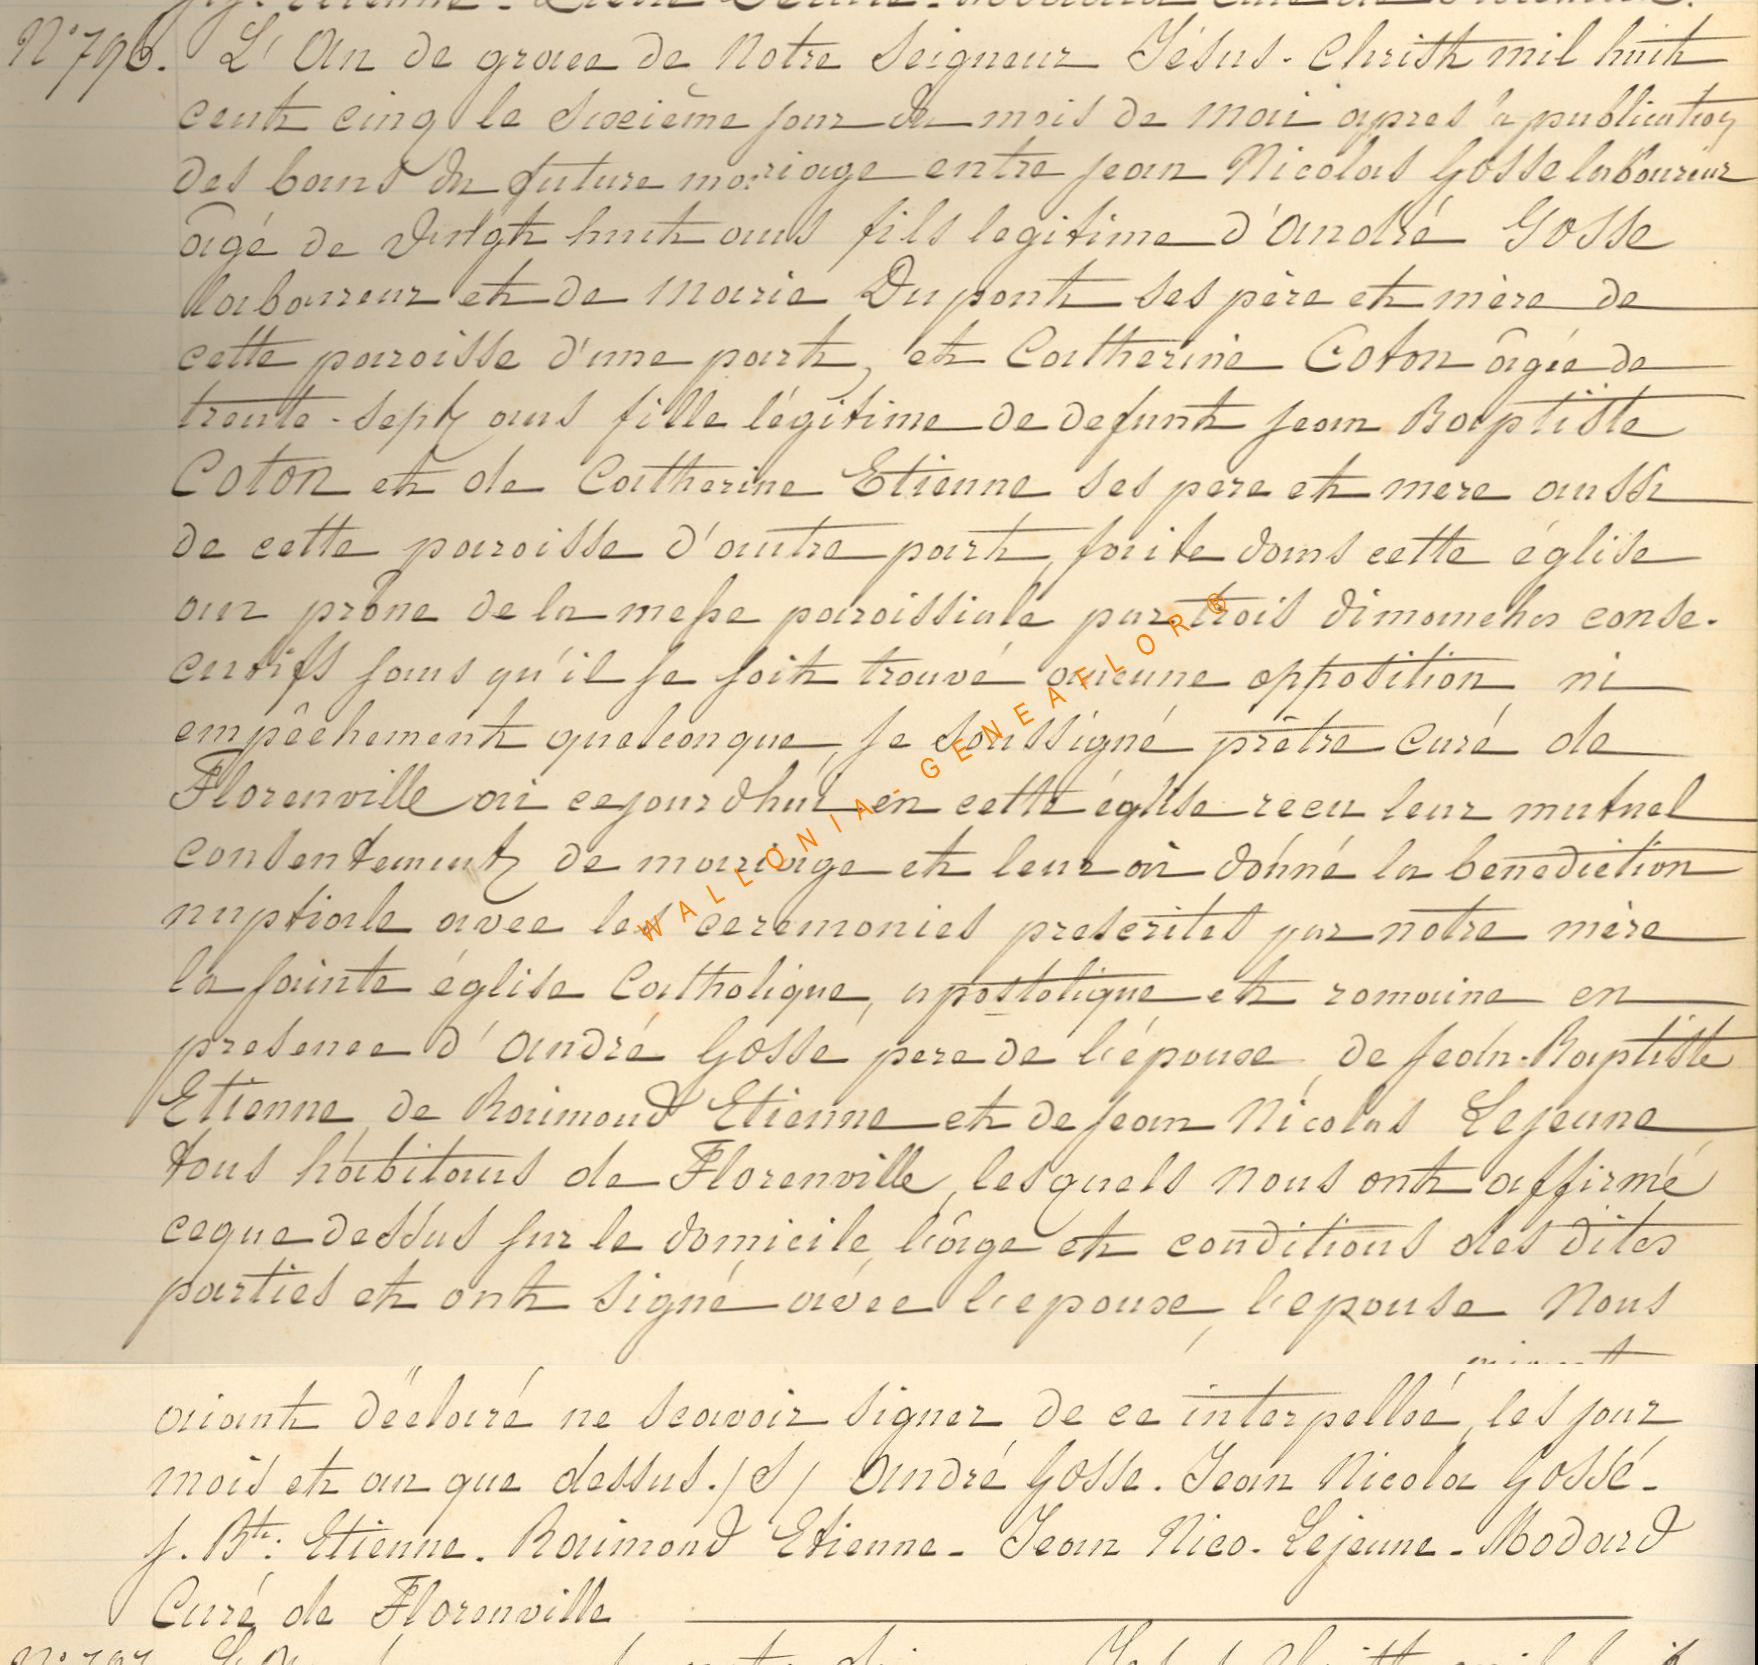 N° 796. L' An de grace de Notre Seigneur Jésus-Christ mil huit
cent cinq le sixième jour du mois de mai apres la publication
des bans du future mariage entre jean Nicolas Gosse laboureur
âgé de vingt huit ans fils legitime d'André Gosse
laboureur et de Marie Dupont ses père et mère de
cette paroisse d'une part, et Catherine Coton âgée de
trente-sept ans fille légitime de defunt jean Baptiste
Coton et de Catherine Etienne ses pere et mere aussi
de cette paroisse d'autre part, faite dans cette église
au prône de la messe paroissiale par trois dimanches conse-
cutifs sans qu'il se soit trouvé aucune opposition ni
empêchement quelconque, je soussigné prêtre curé de
Florenville ai cejourdhui en cette église recu leur mutuel
consentement de mariage et leur ai donné la benediction
nuptiale avec les ceremonies prescrites par notre mère
la sainte église Catholique, apostolique et romaine en
presence d'André Gosse pere de l'épouse, de jean-Baptiste
Etienne, de Raimond Etienne et de jean Nicolas Lejeune
tous habitans de Florenville, lesquels nous ont affirmé
ceque dessus sur le domicile, l'âge et conditions des dites
parties et ont signé avec l'epoux, l'epouse Nous
aiant déclaré ne scavoir signer de ce interpellée, les jour
mois et an que dessus. /S/ André Gosse. Jean Nicola Gosse.
j. Bte: Etienne. Raimond Etienne - Jean Nico. Lejeune - Modard
Curé de Florenville
WALLONIA - GENEAFLOR ®